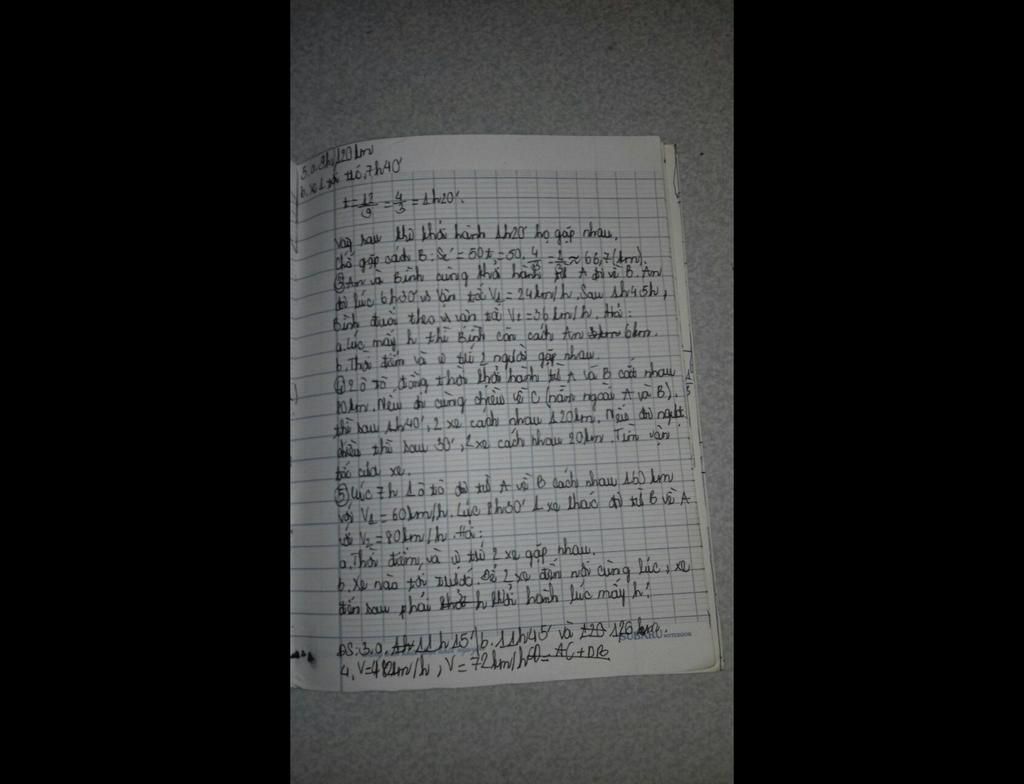 5.a.9h, 120km
b. Xe 1 tới trước, 7h40'
t = 12/9 = 4/3 = 1h20'.
Vậy sau khi khởi hành 1h20' họ gặp nhau.
Chỗ gặp cách B: S2' = 50t = 50. 4/3 = ≈ 66,7 (km).
③ An và Bình cùng khởi hành từ A đi về B. An
đi lúc 6h30' vs vận tốc V1 = 24km/h. Sau 1h45h,
Bình đuổi theo vs vận tốc V2 = 36km/h. Hỏi:
a. Lúc mấy h thì Bình còn cách An 6km.
b. Thời điểm và vị trí 2 người gặp nhau.
④ 2 ô tô đồng thời khởi hành từ A và B cách nhau
km. Nếu đi cùng chiều về C (nằm ngoài A và B).
thì sau 1h40', 2 xe cách nhau 120km. Nếu đi ngược
chiều thì sau 30', 2 xe cách nhau 20km. Tìm vận
tốc của xe.
⑤ Lúc 7h 1 ô tô đi từ A về B cách nhau 160km
với V1 = 60km/h. Lúc 30' 1 xe khác đi từ B về A
với V2 = 80km/h. Hỏi:
a. Thời điểm, và vị trí 2 xe gặp nhau.
b. Xe nào tới trước. Để 2 xe đến nơi cùng lúc, xe
đến sau phải khởi hành lúc mấy h?
ĐS: 3.a. 11h15' b. 11h45' và 126km.
SUBARU NOTEBOOK
4. V = km/h, V = 72km/h